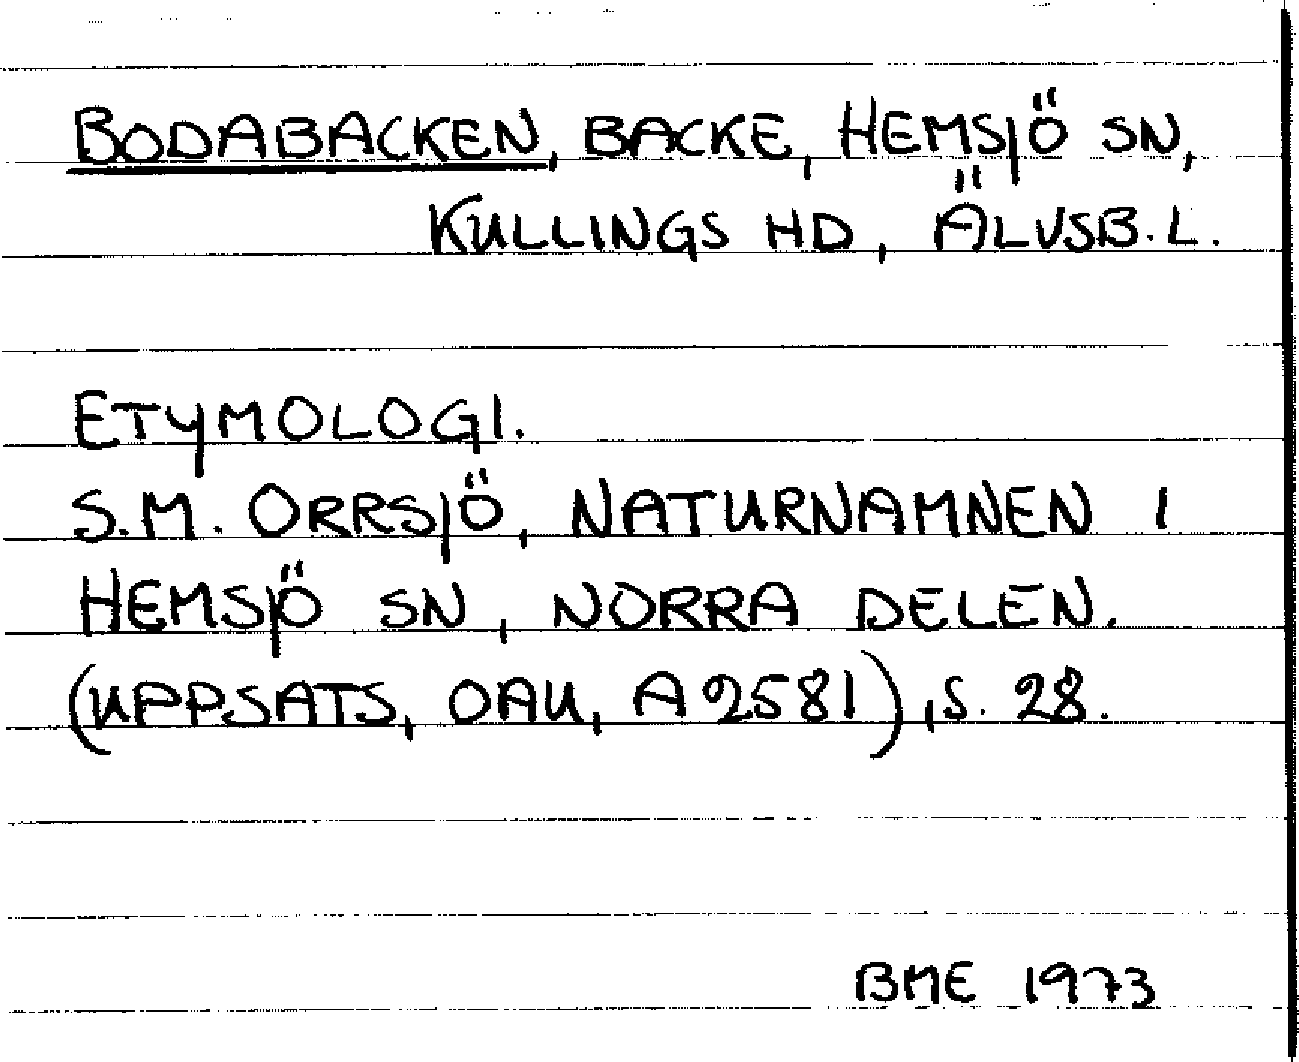 BODABACKEN, BACKE, HEMSJÖ SN,
KULLINGS HD, ÄLVSB. L.
ETYMOLOGI.
S.M. ORRSJÖ, NATURNAMNEN I
HEMSJÖ SN, NORRA DELEN.
(UPPSATS, OAU, A 2581), S. 28.
BME 1973